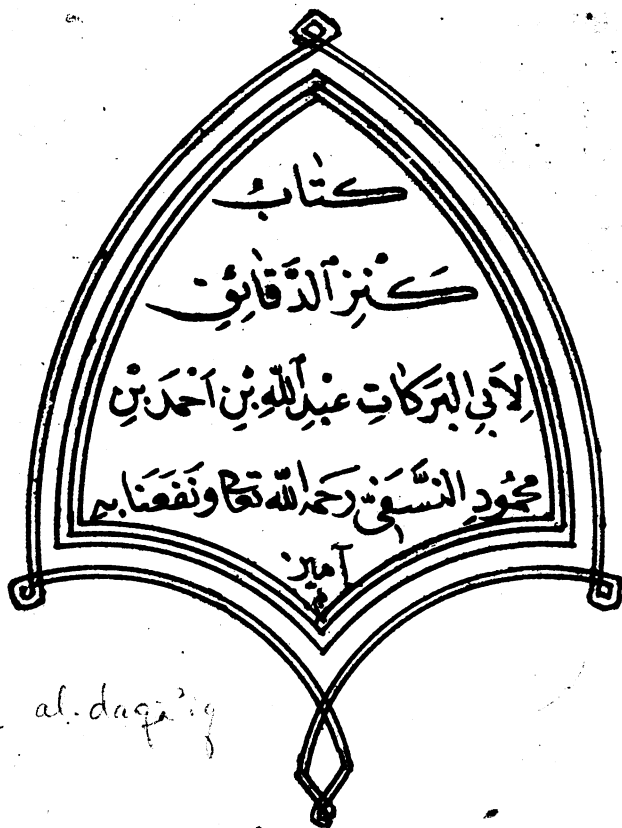 كتابُ
كَنْزِ ٱلدَّقَائِقِ
لِاَبِي الْبَرَكَاتِ عَبْدِ ٱللّٰهِ بْنِ اَحْمَدَ بْنِ
مَحْمُودِ النَّسَفِيِّ رَحِمَهُ اللّٰه تعا ونَفَعَنَا بِهِ
آمين
al-daqa'iq